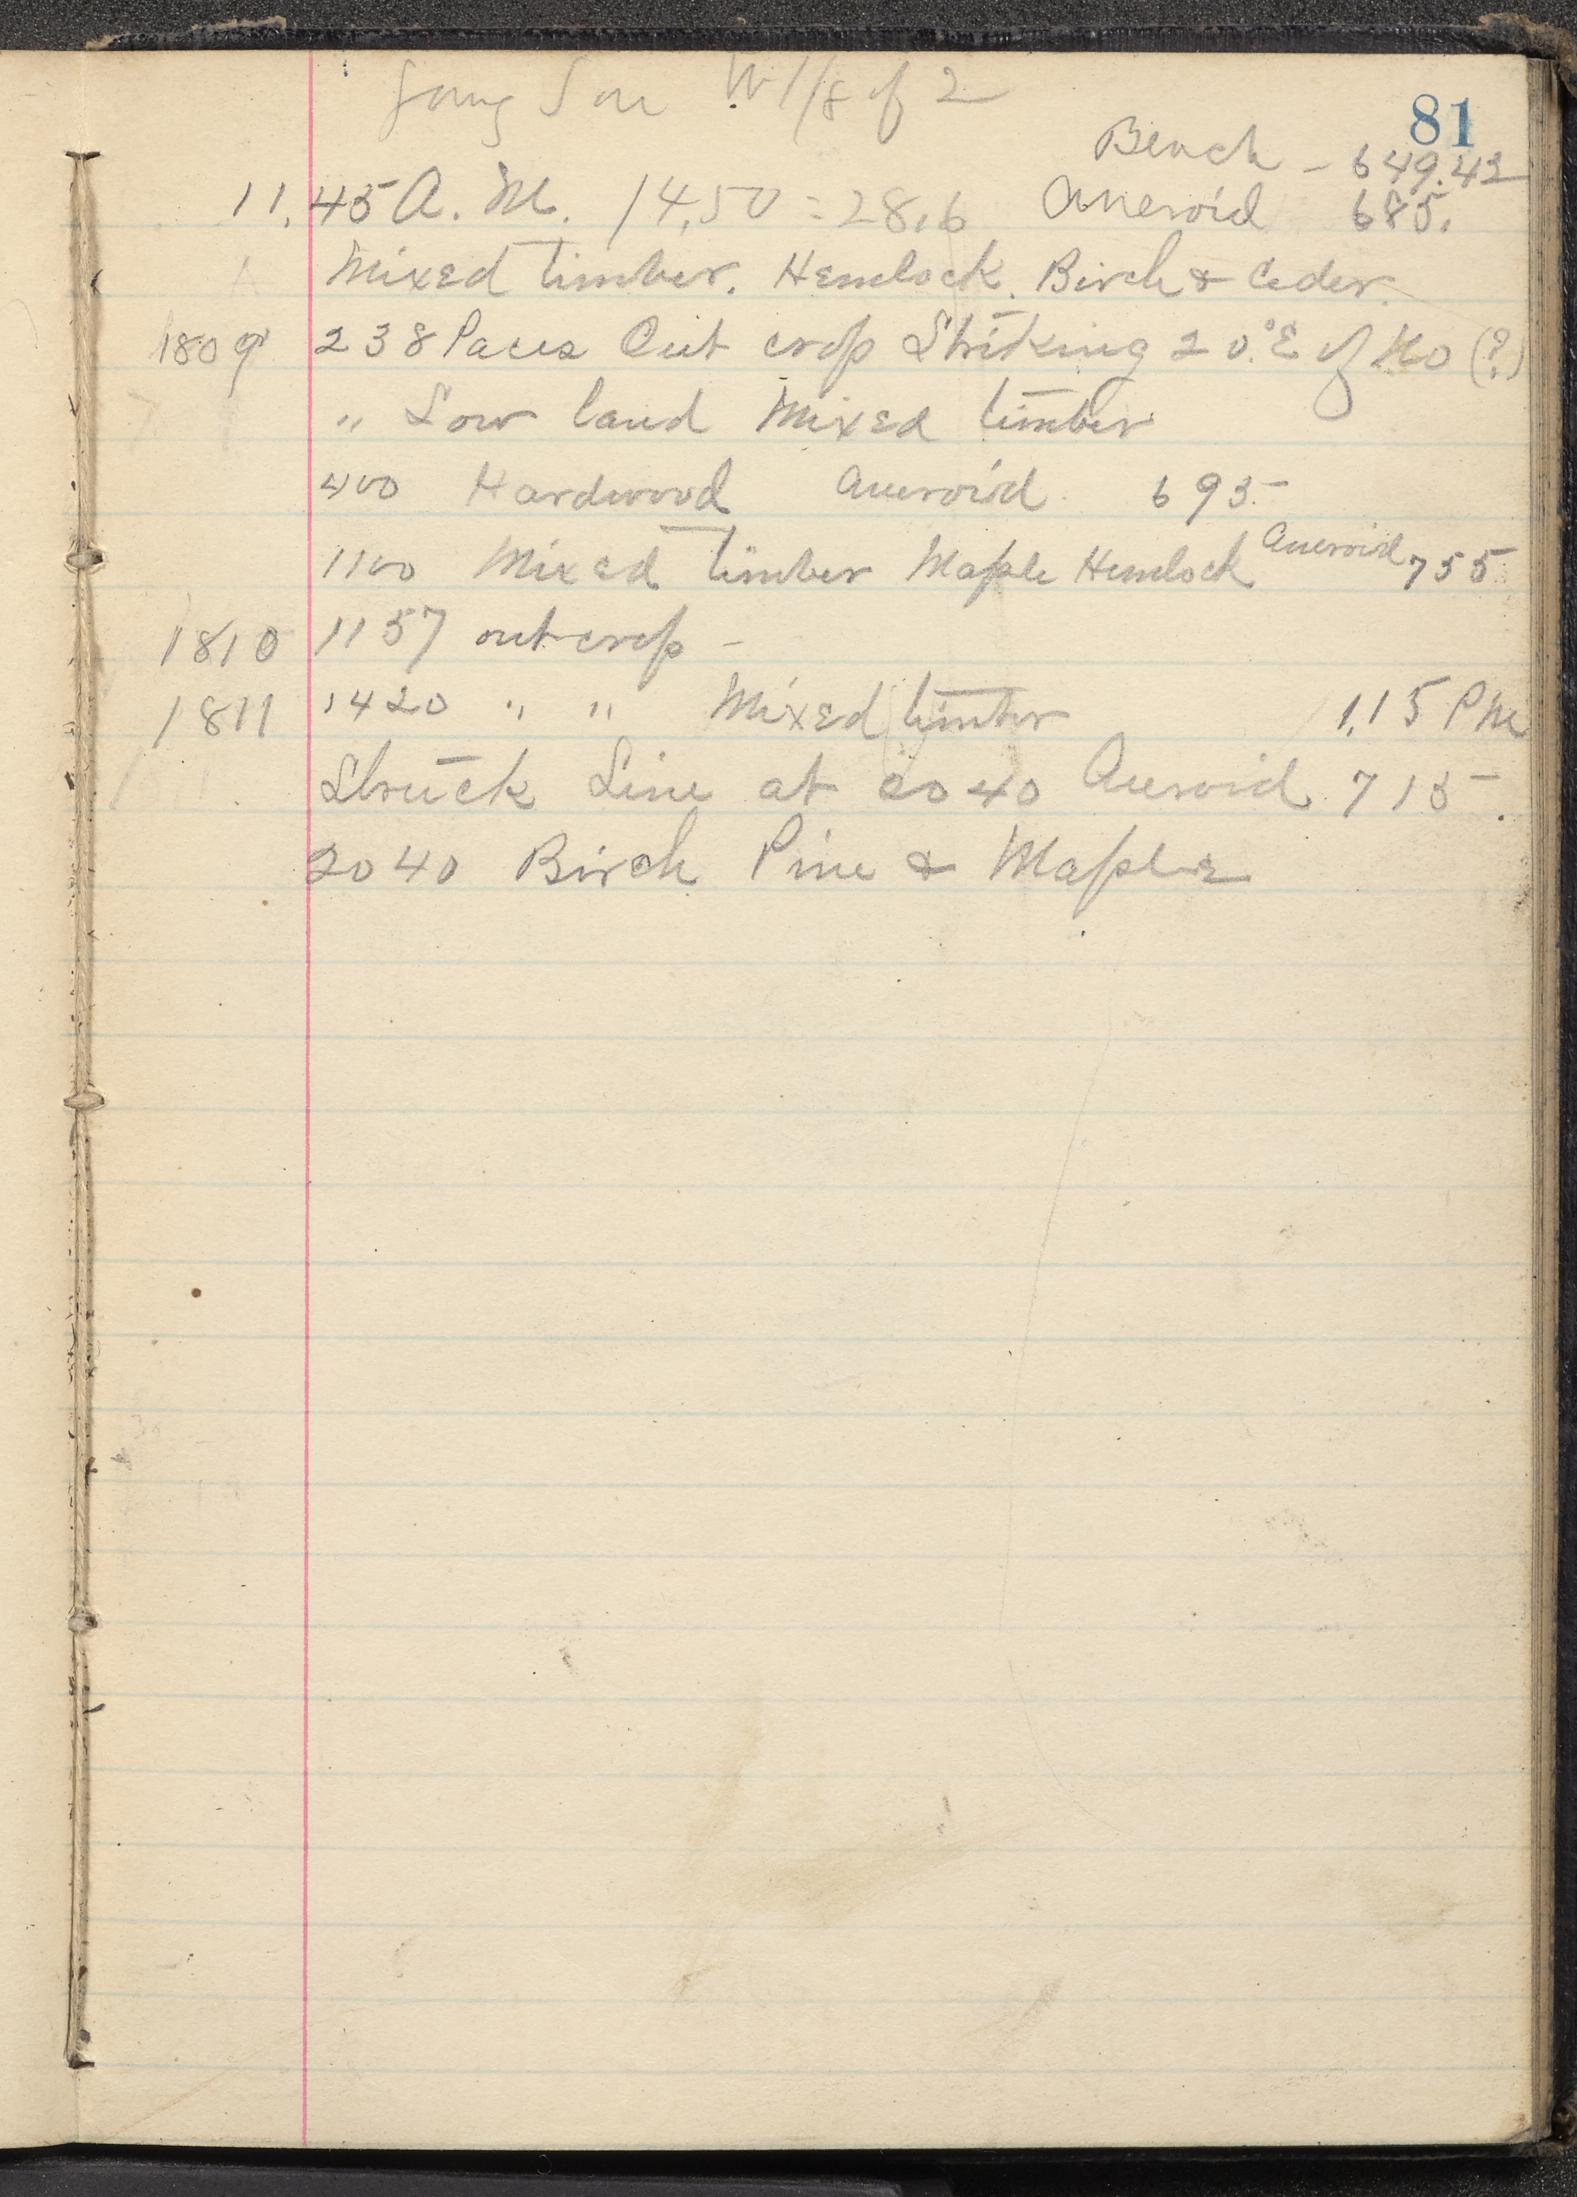 Going S on W 1/8 of 2
81
Bench - 649.42
11.45 A. M. 14.50 = 28.6 Aneroid 685.
Mixed timber. Hemlock. Birch & Ceder.
1809 238 Paces Out crop Striking 20.°E of No (?)
" Low land Mixed timber
400 Hardwood Aneroid 695
1100 Mixed timber Maple Hemlock Aneroid 755
1810 1157 outcrop -
1811 1420 " " Mixed timber 1.15 PM
Struck Line at 2040 Aneroid 715.
2040 Birch Pine & Maple